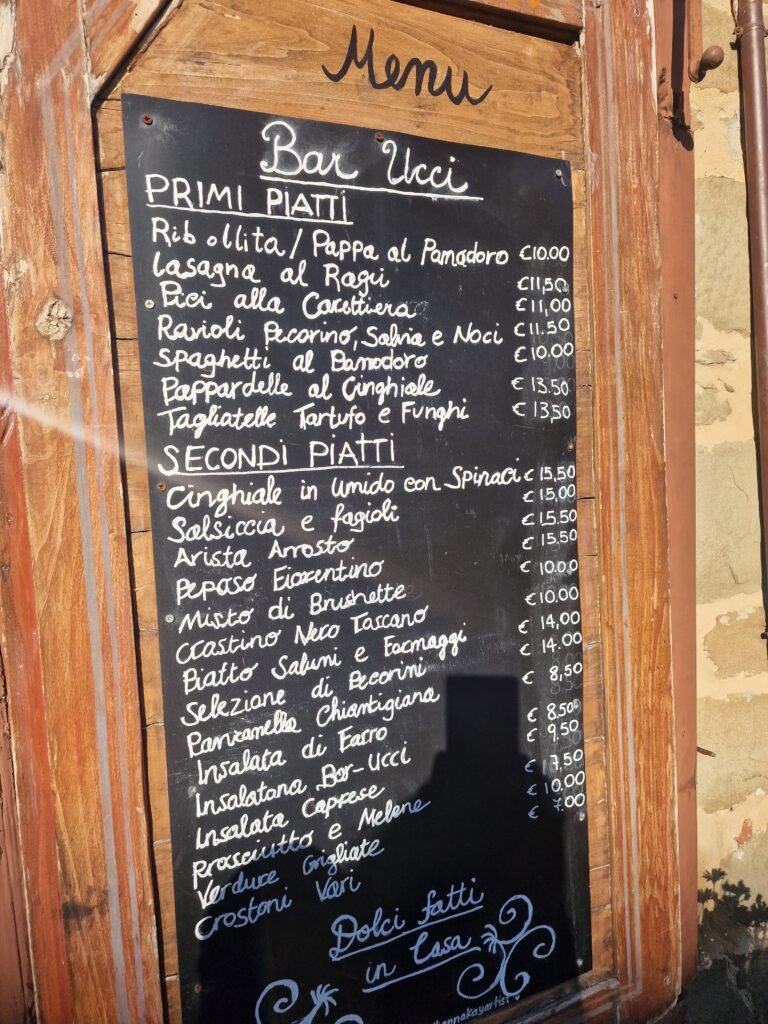 Menu
Bar Ucci
PRIMI PIATTI
Ribollita / Pappa al Pomodoro €10.00
Lasagna al Ragú €11,50
Pici alla Carettiera €11,00
Ravioli Pecorino, Salvia e Noci €11.50
Spaghetti al Pomodoro €10.00
Pappardelle al Cinghiale €13.50
Tagliatelle Tartufo e Funghi €13,50
SECONDI PIATTI
Cinghiale in umido con Spinaci €15,50
Salsiccia e fagioli €15,00
Arista Arrosto €15.50
Peposo Fiorentino €15.50
Misto di Brushette €10.00
Crostino Nero Toscano €10.00
Piatto Salumi e Formaggi €14,00
Selezione di Pecorini €14.00
Panzanella Chiantigiana €8,50
Insalata di Farro €8.50
Insalatana Bar-Ucci €9.50
Insalata Caprese €17,50
Prosciutto e Melone €10.00
Verdure Grigliate €7.00
Crostoni Vari
Dolci fatti
in Casa